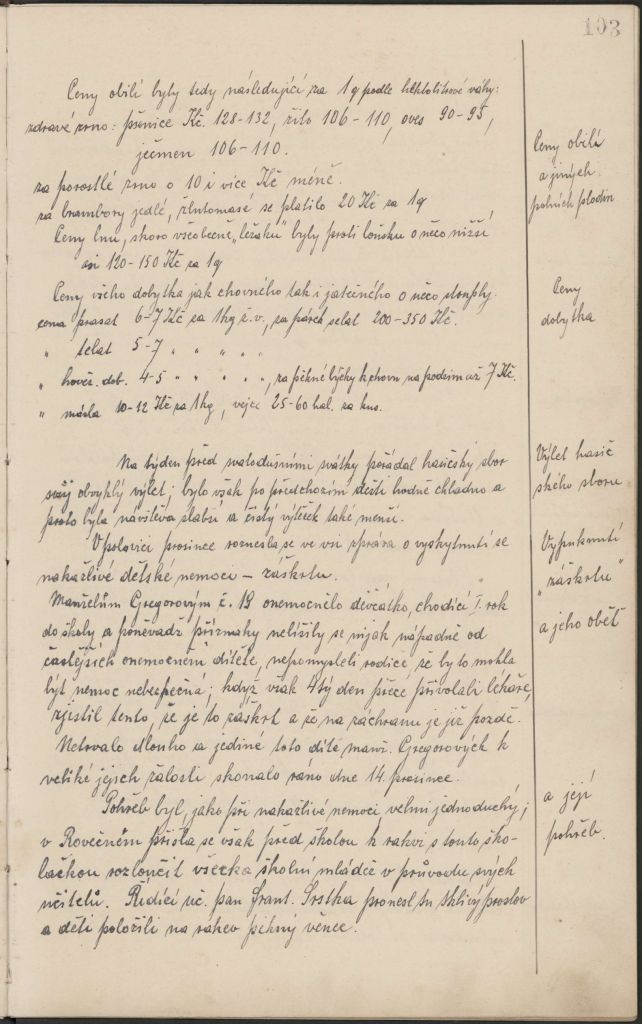 103
Ceny obilí byly tedy následující za 1 q podle hektolitrové váhy:
zdravé zrno: pšenice Kč. 128-132, žito 106-110, oves 90-95,
ječmen 106-110.
za porostlé zrno o 10 i více Kč méně.
za brambory jedlé, žlutomasé se platilo 20 Kč za 1q
Ceny lnu, skoro všeobecně „ležáku" byly proti loňsku o něco nižší
asi 120-150 Kč za 1q
Ceny všeho dobytka jak chovného tak i jatečného o něco stouply.
cena prasat 6-7 Kč za 1kg ž.v., za párek selat 200-350 Kč.
" telat 5-7 " " " " "
" hověz. dob. 4-5 " " " " ", za pěkné býčky k chovu na podzim až 7 Kč.
" másla 10-12 Kč za 1kg, vejce 25-60 hal. za kus.
Na týden před svatodušními svátky pořádal hasičský sbor
svůj obvyklý výlet; bylo však po předchozím dešti hodně chladno a
proto byla návštěva slabší a čistý výtěžek také menší.
V polovici prosince roznesla se ve vsi zpráva o vyskytnutí se
nakažlivé dětské nemoci – záškrtu.
Manželům Gregorovým č. 19 onemocnělo děvčátko, chodící I. rok
do školy a poněvadž příznaky nelišily se nijak nápadně od
častějších onemocnění dítěte, nepomysleli rodiče, že by to mohla
být nemoc nebezpečná; když však 4tý den přece přivolali lékaře,
zjistil tento, že je to záškrt a že na záchranu je již pozdě.
Netrvalo dlouho a jediné toto dítě manž. Gregorových k
veliké jejich žalosti skonalo ráno dne 14. prosince.
Pohřeb byl, jako při nakažlivé nemoci velmi jednoduchý;
v Rovečném přišla se však před školou k rakvi s touto ško-
lačkou rozloučit všecka školní mládež v průvodu svých
učitelů. Řídící uč. pan Frant. Srstka pronesl tu tklivý proslov
a děti položili na rakev pěkný věnec.
Ceny obilí
a jiných
polních plodin
Ceny
dobytka
Výlet hasič
ského sboru
Vypuknutí
„záškrtu"
a jeho oběť
a její
pohřeb.